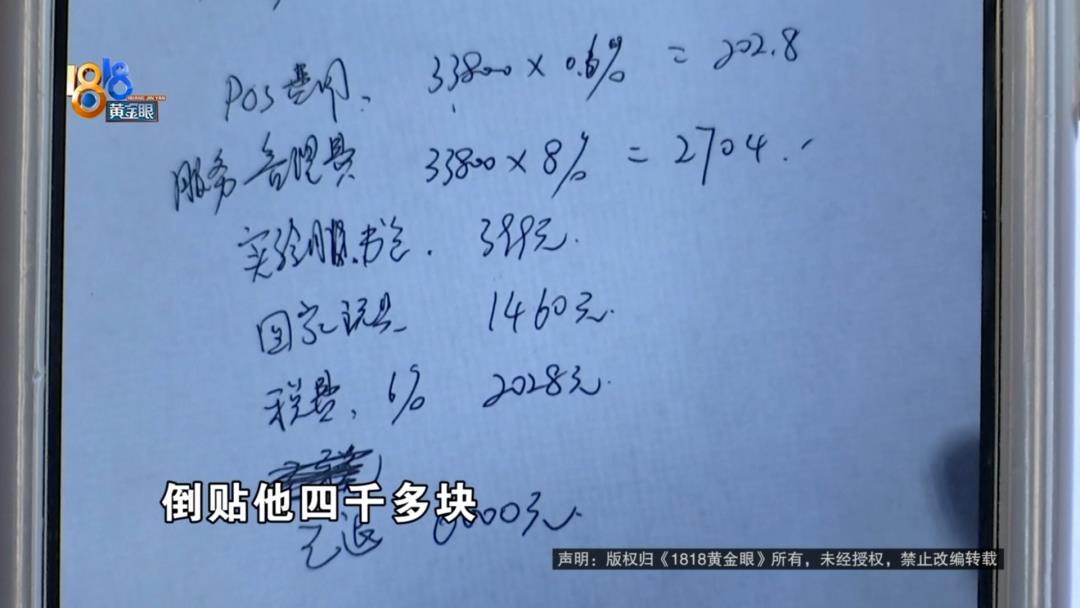 1818
HUANG JIN YAN
黄金眼
POS费用、 33800×0.6% = 202.8
服务管理费 33800×8% = 2704.
实验服.书包. 399元.
回家玩具 1460元.
税费、6% 2028元.
倒贴他四千多块
已退 000元.
声明：版权归《1818黄金眼》所有，未经授权，禁止改编转载